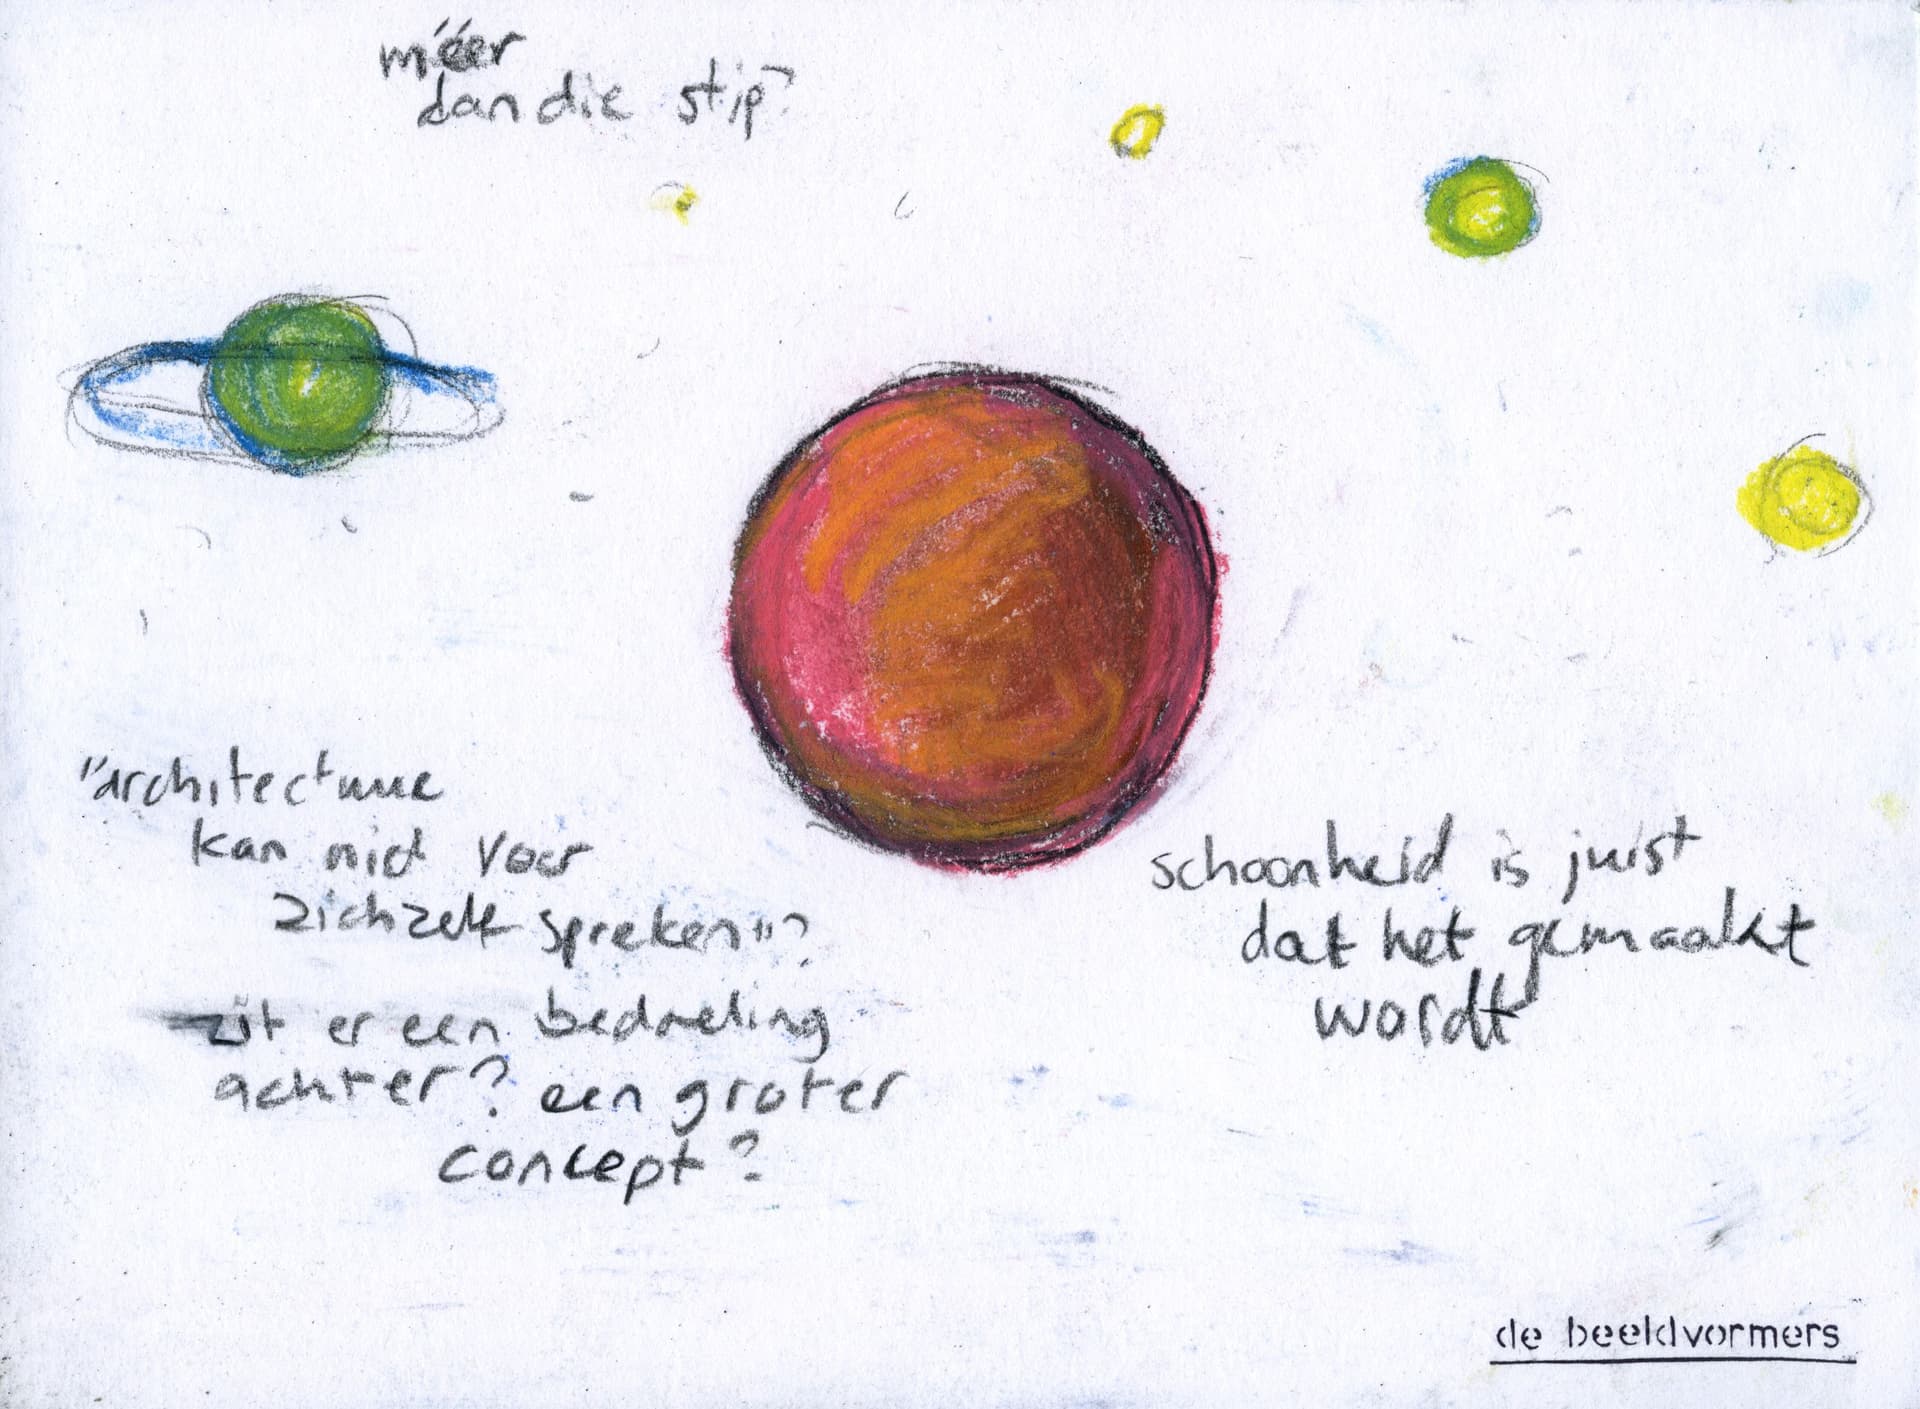 méér
dan die stip?
"architectuur
kan niet voor
zichzelf spreken"?
zit er een bedoeling
achter? een groter
concept?
schoonheid is juist
dat het gemaakt
wordt
de beeldvormers